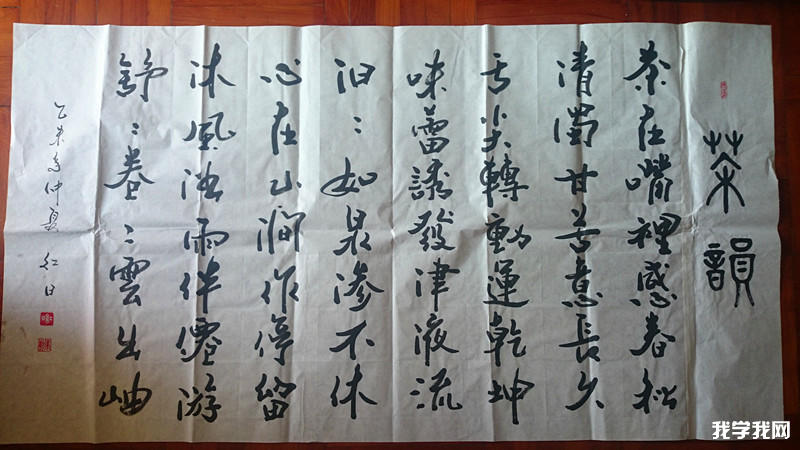 茶韻
茶在嘴裡感春秋
清濁甘苦意長久
舌尖轉動運乾坤
味蕾誘發津液流
汩々如泉滲不休
心在山澗作停留
沐風浴雨伴僊游
舒々卷々雲出岫
乙未年仲夏 红日
我学我网